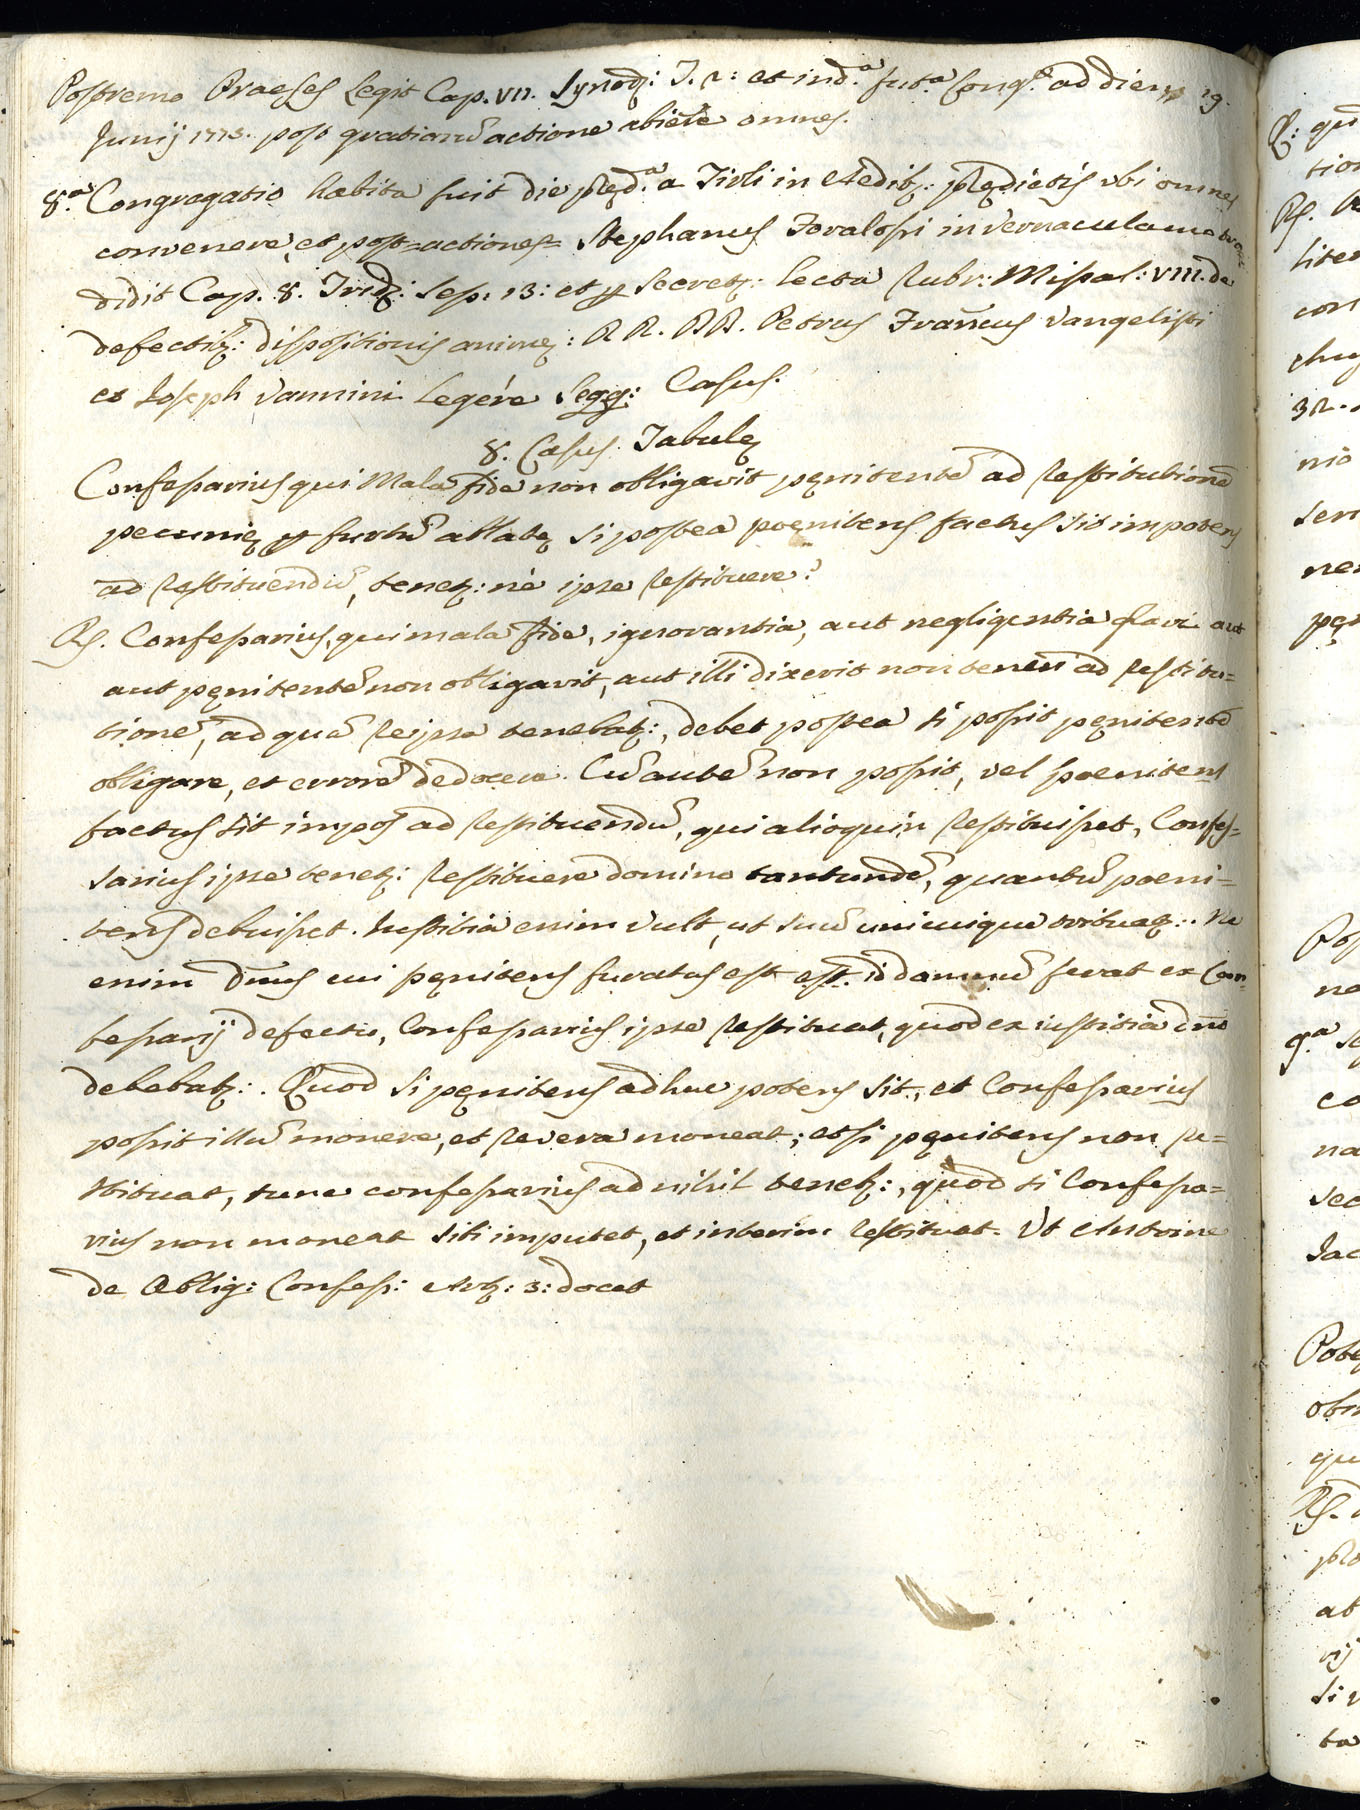 Postremo Praeses legit Cap. VII. Synodę: T. 2: et ind.a fut.a Cong.e ad diem 19.
Junij 1775. post gratiarũ actione abiere omnes.
8.a Congregatio habita fuit die pręd.a a Tioli in Aedibꝫ: prędictis ubi omnes
convenere, et post = actiones = Stephanus in vernaculam
didit Cap. 8. Tridꝫ: Ses: 13: et ꝑ Secretꝫ: lecta Rubr: Missal: VIII. de
defectibꝫ: dispositionis animę: R R. D D. Petrus Frañcus Vangelisti
et Joseph Vannini legére segg: Casus.
8. Casus Tabulę
Confessarius qui Mala fide non obligavit pęnitentẽ ad restitutionẽ
pecunię ꝑ furtũ ablatę si postea poenitens factus sit impotens
ad restituendũ, tenetꝫ: nè ipse restituere?
Rs. Confessarius, qui mala fide, ignorantia, aut negligentia gravi aut
aut pęnitentẽ non obligavit, aut illi dixerit non teneri ad restitu=
tionẽ, ad quã reipsa tenebatꝫ:, debet postea si possit pęnitentẽ
obligare, et errorẽ dedocere. Cũ autẽ non possit, vel poenitens
factus sit impos ad restituendũ, qui alioquin restituisset, Confes=
sarius ipse tenetꝫ: restituere domino tantundẽ, quantũ poeni=
tens debuisset. Justitia enim vult, ut suũ unicuique tribuatꝫ:. Ne
enim Dñus cui pęnitens furatus est est. id damnũ ferat ex Con=
fessarij defectu, Confessarius ipse restituat, quod ex iustitia dño
debebatꝫ:. Quod si pęnitens adhuc potens sit, et Confessarius
possit illũ monere, et revera moneat; et si pęnitens non re=
stituat, tunc confessarius ad nihil tenetꝫ:, quod si Confessa=
rius non moneat sibi imputet, et interim restituat. Ut Antoine
de Oblig: Confess: Artꝫ: 3: docet